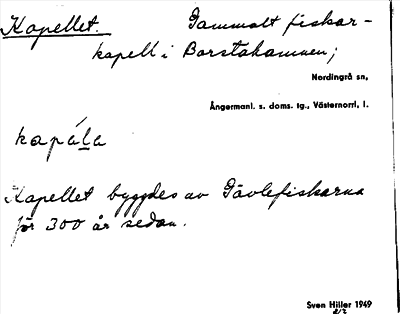 Kapellet. Gammalt fiskar-
kapell i Barstahamnen;
Nordingrå sn,
Ångermanl. s. doms. tg., Västernorrl. l.
kapäla
Kapellet byggdes av Gävlefiskarna
för 300 år sedan.
Sven Hiller 1949